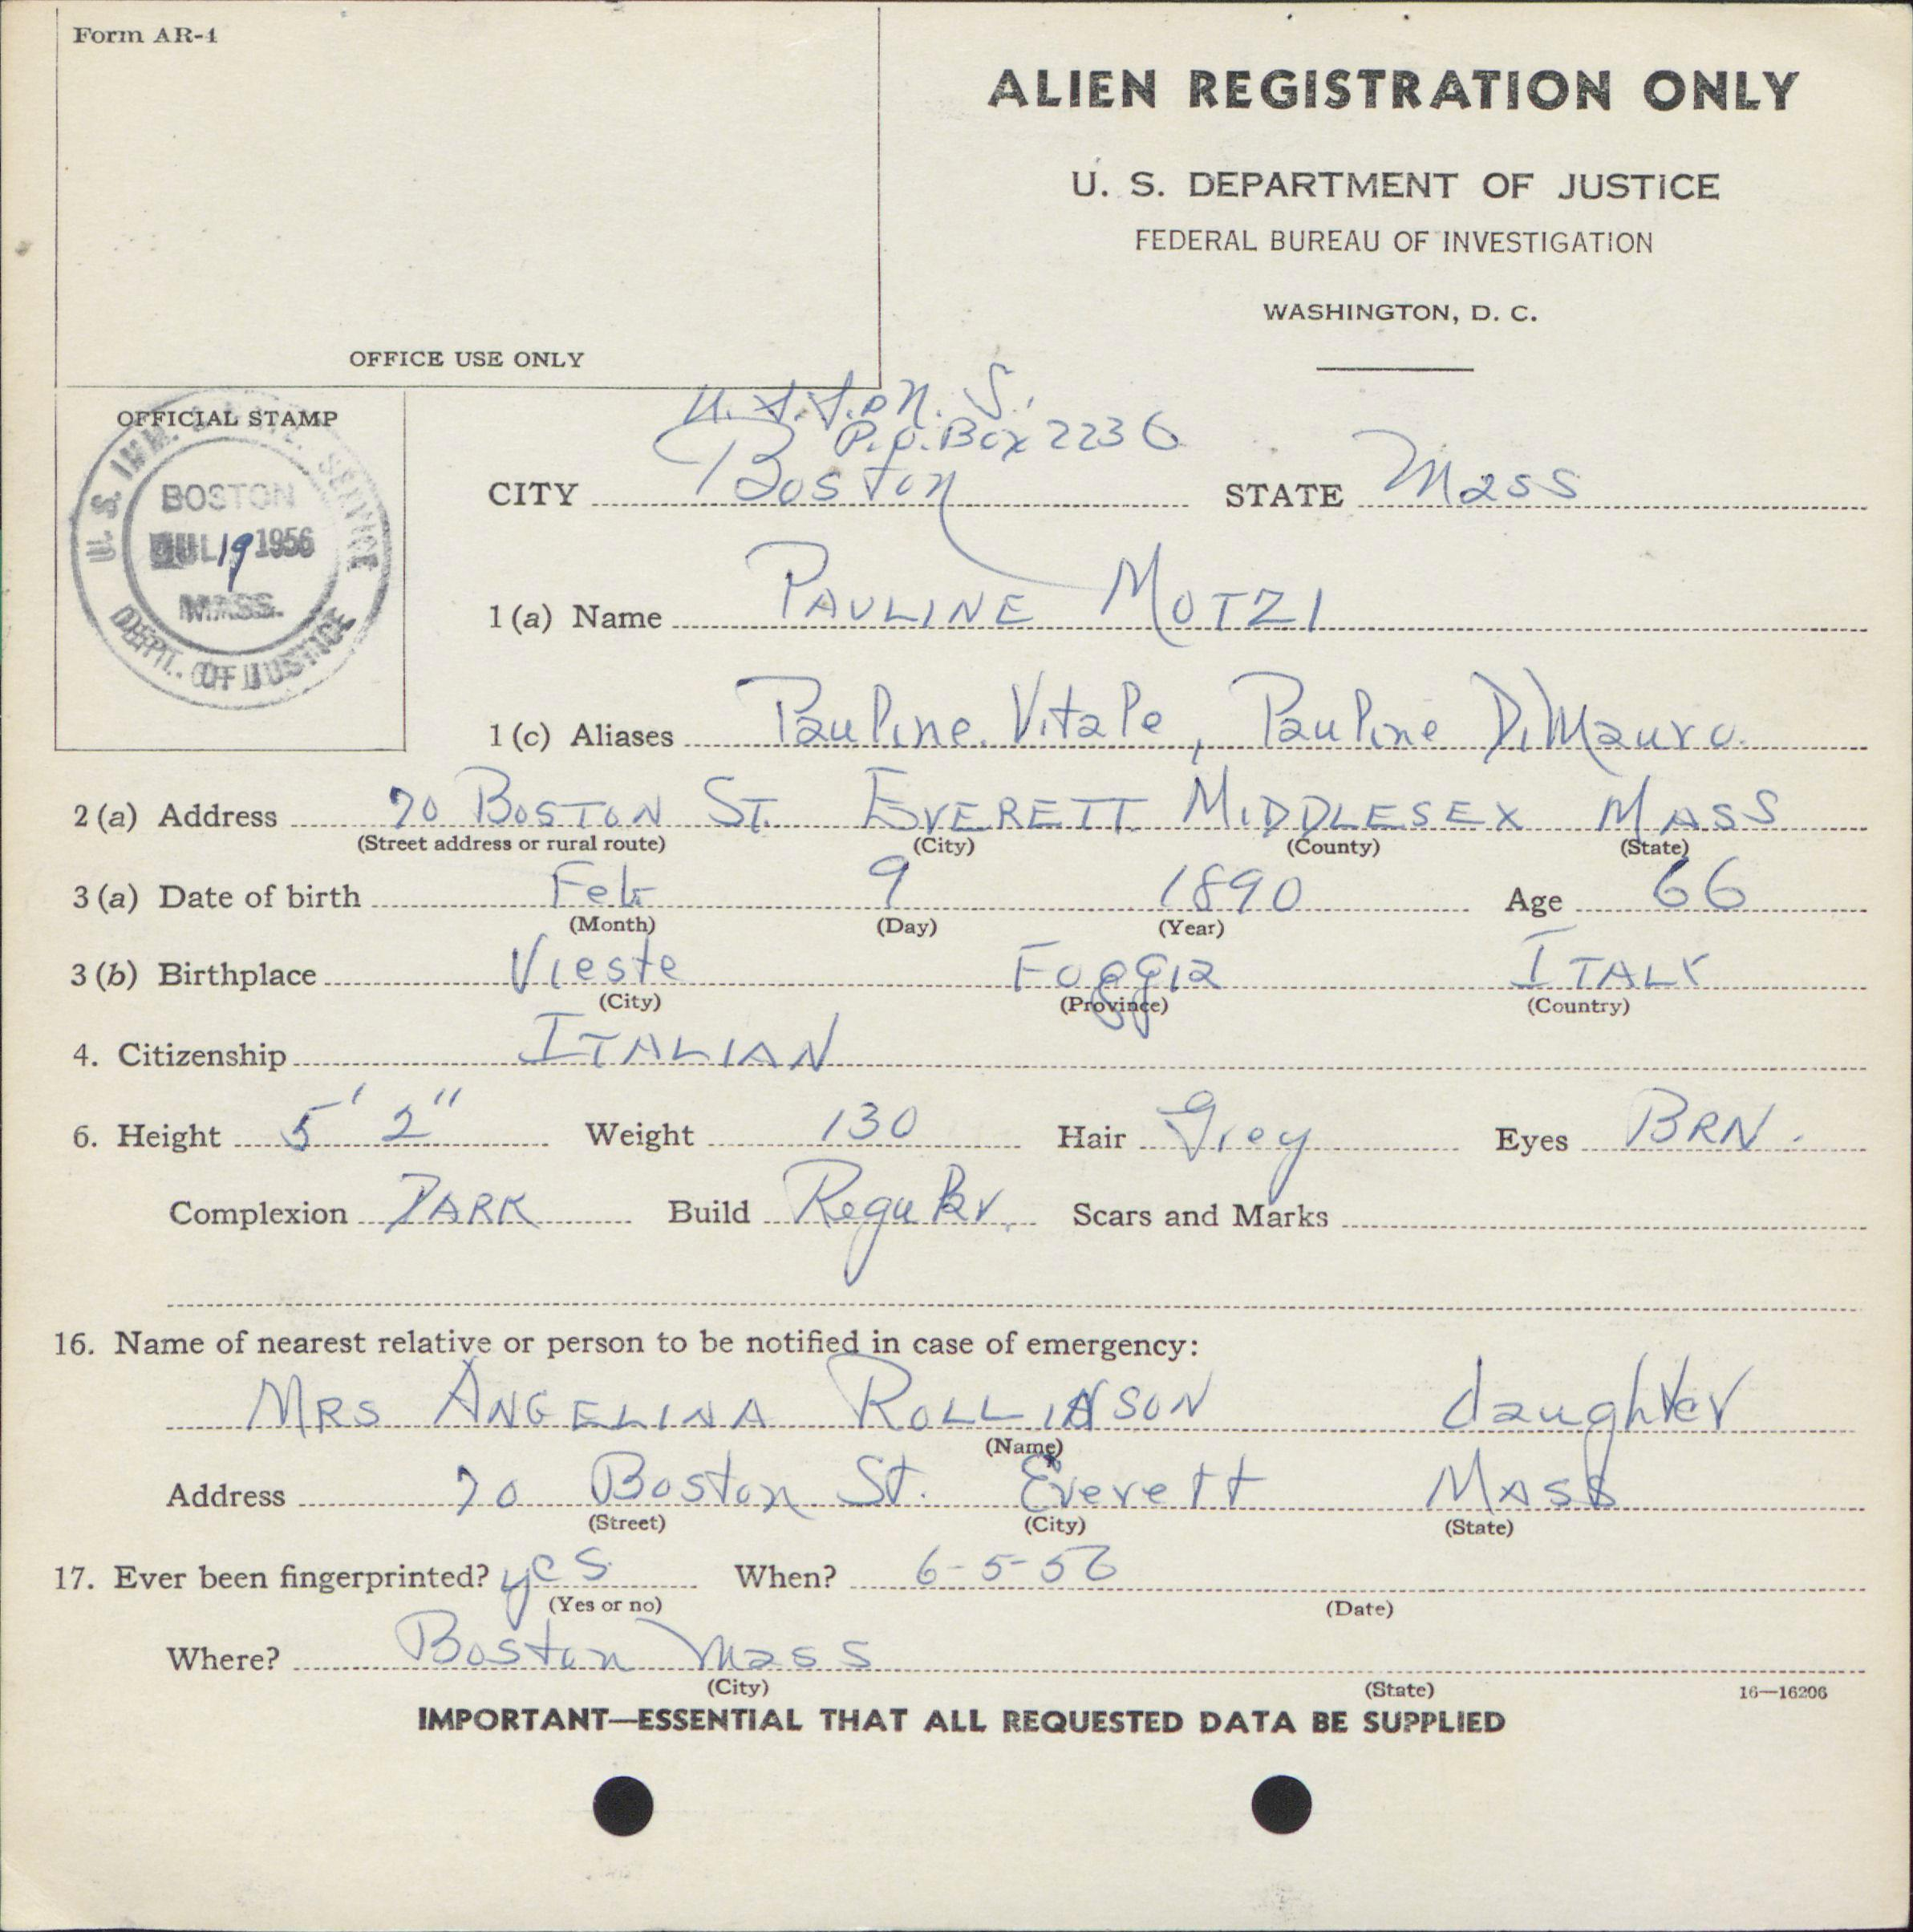 Form AR-4
ALIEN REGISTRATION ONLY
U. S. DEPARTMENT OF JUSTICE
FEDERAL BUREAU OF INVESTIGATION
WASHINGTON, D. C.
OFFICE USE ONLY
OFFICIAL STAMP
U. S. IMM. SERVICE
BOSTON
JUL 19 1956
MASS.
DEPT. OF JUSTICE
P.O. Box 2236
CITY Boston STATE Mass
1 (a) Name PAULINE MOTZI
1 (c) Aliases Pauline Vitale, Pauline DiMauro
2 (a) Address 70 BOSTON ST. EVERETT MIDDLESEX MASS
(Street address or rural route) (City) (County) (State)
3 (a) Date of birth Feb 9 1890 Age 66
(Month) (Day) (Year)
3 (b) Birthplace Vieste Foggia ITALY
(City) (Province) (Country)
4. Citizenship ITALIAN
6. Height 5' 2" Weight 130 Hair Grey Eyes BRN.
Complexion DARK Build Regular Scars and Marks
16. Name of nearest relative or person to be notified in case of emergency:
MRS ANGELINA ROLLINSON daughter
(Name)
Address 70 Boston St. Everett MASS
(Street) (City) (State)
17. Ever been fingerprinted? yes When? 6-5-56
(Yes or no) (Date)
Where? Boston Mass
(City) (State) 16—16206
IMPORTANT—ESSENTIAL THAT ALL REQUESTED DATA BE SUPPLIED